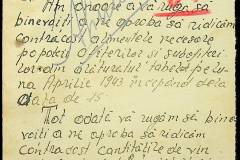 Am onoare a vă ruga să
binevoiți a ne aproba să ridicăm
contracost alimentele necesare
popotii ofiterilor si subofite
lor din alăturatul tabel pe lu-
na Aprilie 1943 începând dela
data de 15.
Tot odată vă rugăm să bine
voiți a ne aproba să ridicăm
contracost cantitățile de vin